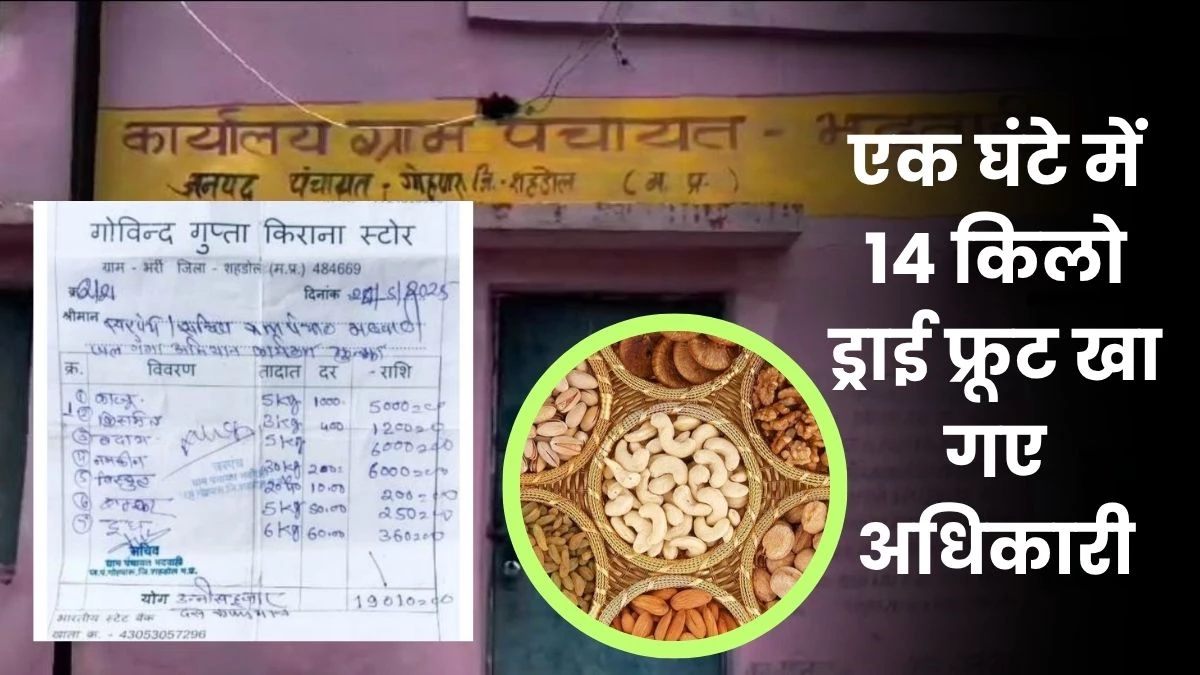 कार्यालय ग्राम पंचायत -
जनपद पंचायत - गोहपारू जि.- शहडोल (म. प्र.)
गोविन्द गुप्ता किराना स्टोर
ग्राम - भर्री जिला - शहडोल (म.प्र.) 484669
दिनांक
श्रीमान
जल गंगा अभियान
क्र. विवरण तादात दर राशि
① काजू 5kg 1000 5000=00
② किसमिस 3kg 400 1200=00
③ बादाम 5kg 6000=00
④ नमकीन 30kg 200 6000=00
⑤ बिस्कुट 10.00 200=00
⑥ 5kg 50.00 250=00
⑦ दूध 6kg 60.00 360=00
सरपंच
सचिव
ग्राम पंचायत भदवाही
ज.पं.गोहपारू,जि.शहडोल म.प्र.
योग उन्नीस हजार 19010=00
दस
भारतीय स्टेट बैंक
खाता क्र. - 43053057296
एक घंटे में
14 किलो
ड्राई फ्रूट खा
गए
अधिकारी